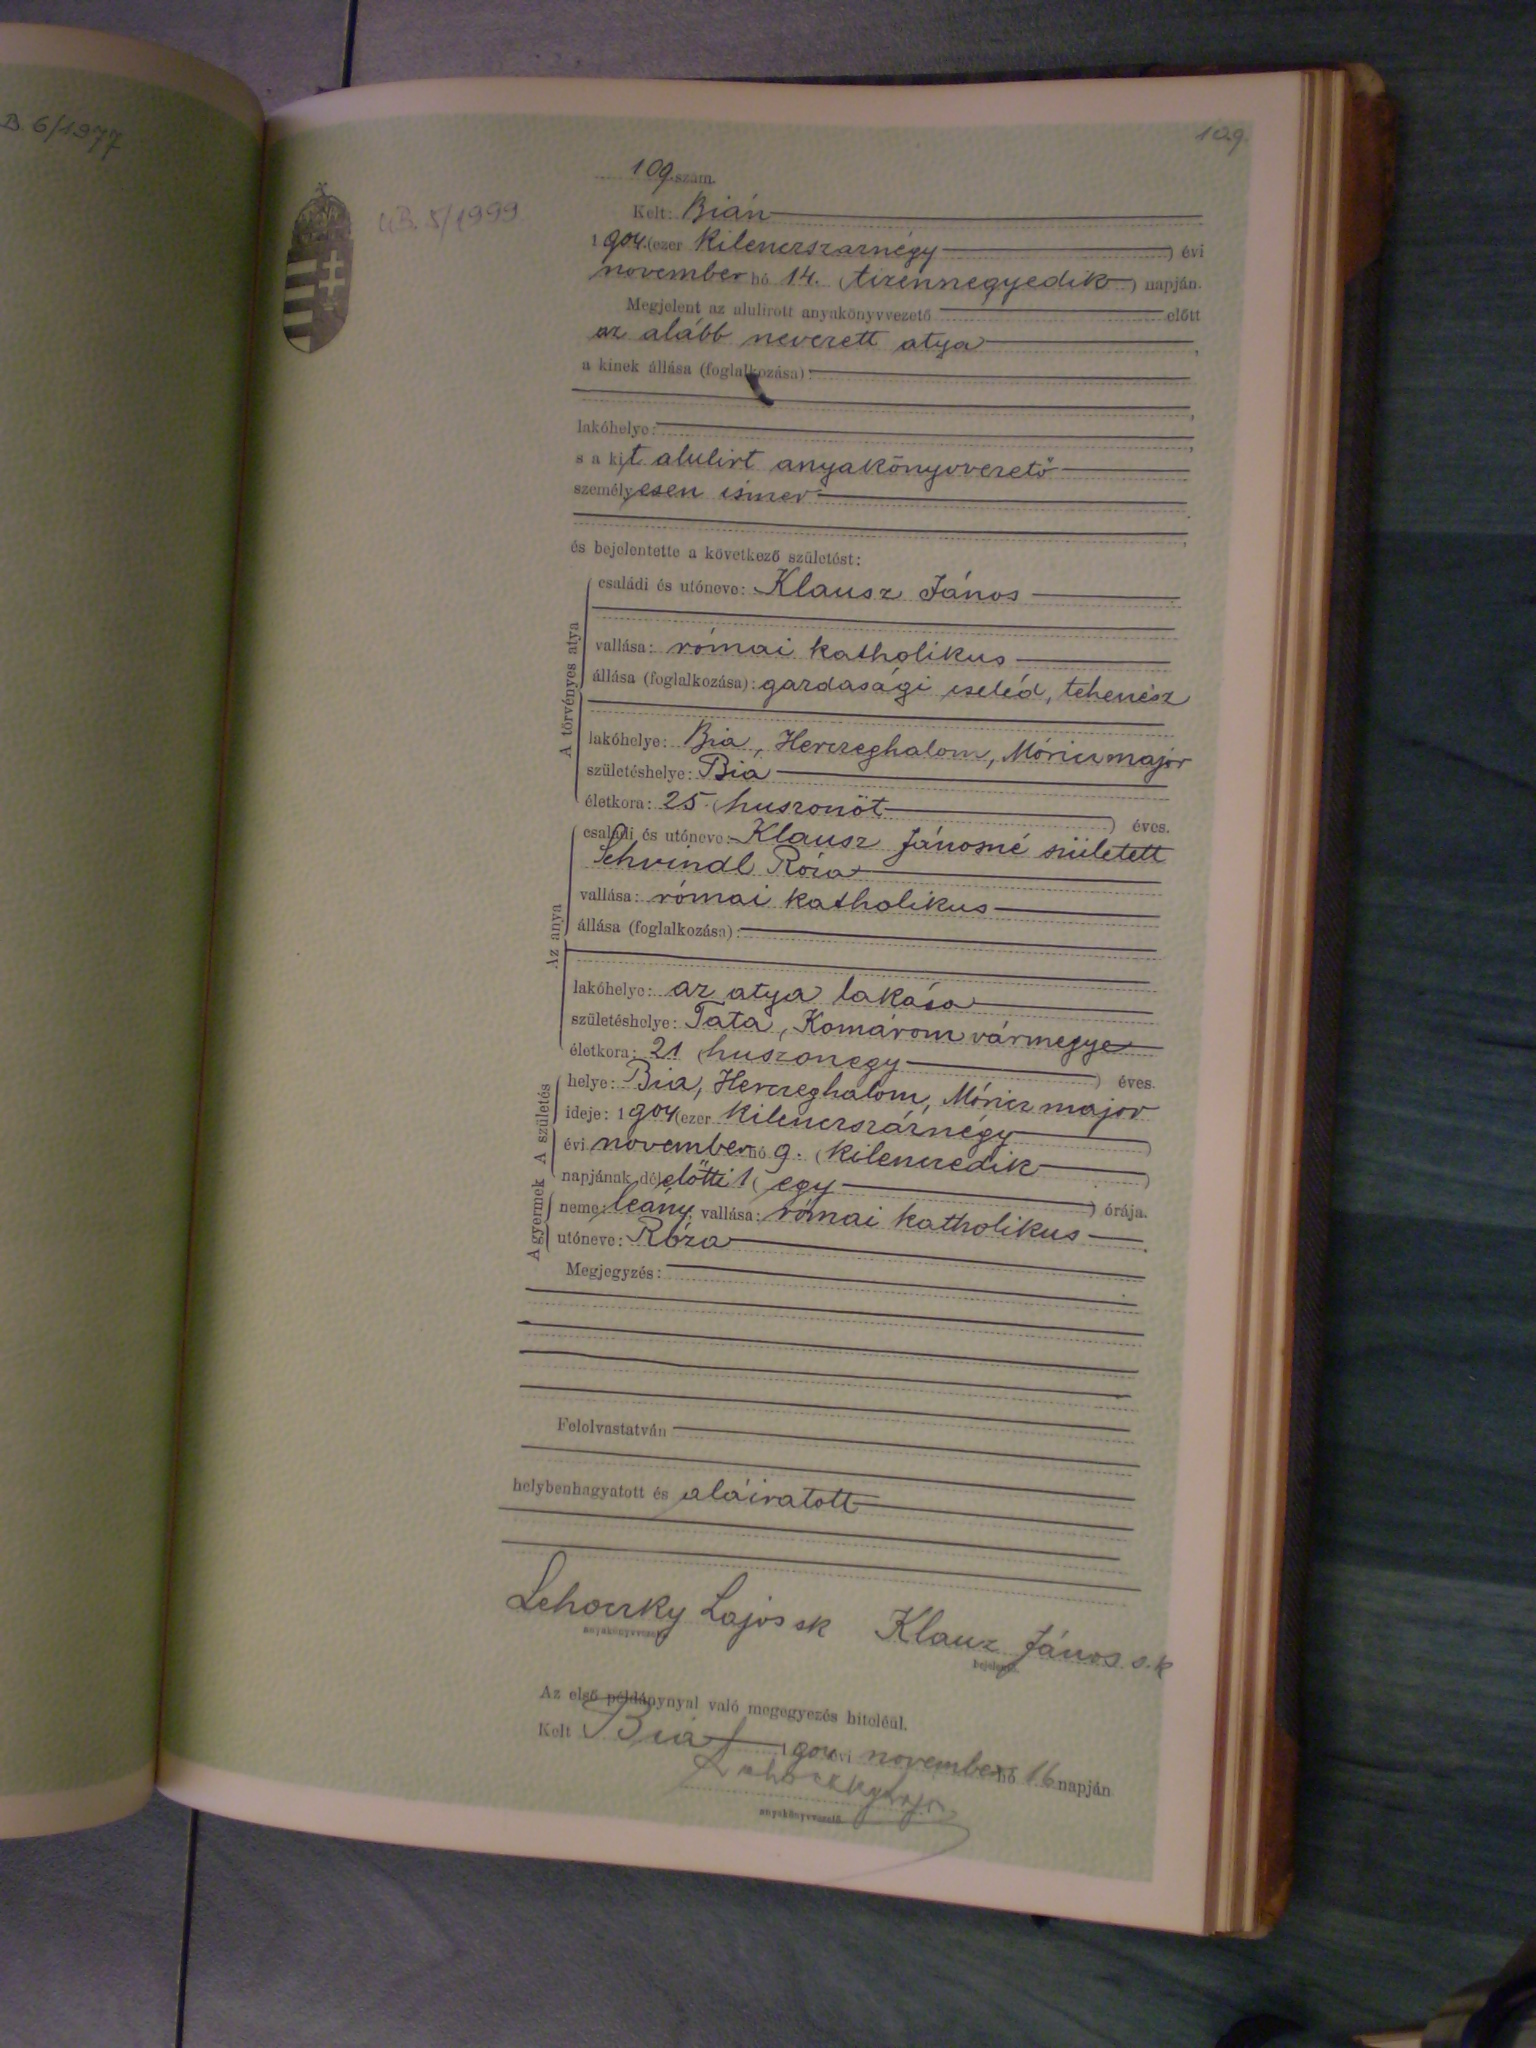 B. 6/1977
109.
UB. 5/1999
109. szám.
Kelt: Bián
1904. (ezer kilenczszáznégy) évi
november hó 14. (tizennegyedik) napján.
Megjelent az alulirott anyakönyvvezető előtt
az alább nevezett atya,
a kinek állása (foglalkozása):
lakóhelye:
s a kit alulirt anyakönyvvezető
személyesen ismer
és bejelentette a következő születést:
A törvényes atya
családi és utóneve: Klausz János
vallása: római katholikus
állása (foglalkozása): gazdasági cseléd, tehenész
lakóhelye: Bia, Herczeghalom, Móricz major
születéshelye: Bia
életkora: 25 (huszonöt) éves.
Az anya
családi és utóneve: Klausz Jánosné született
Schvindl Róza
vallása: római katholikus
állása (foglalkozása):
lakóhelye: az atya lakása
születéshelye: Tata, Komárom vármegye
életkora: 21 (huszonegy) éves.
A születés
helye: Bia, Herczeghalom, Móricz major
ideje: 1904 (ezer kilenczszáznégy)
évi november hó 9. (kilenczedik)
napjának délelőtti 1 (egy) órája.
A gyermek
neme: leány, vallása: római katholikus
utóneve: Róza
Megjegyzés:
Felolvastatván
helybenhagyatott és aláiratott
Lehoczky Lajos sk Klauz János s.k
anyakönyvvezető bejelentő
Az első példánynyal való megegyezés hiteléül.
Kelt Bia 1904 évi november hó 16 napján
Lehoczky Lajos
anyakönyvvezető